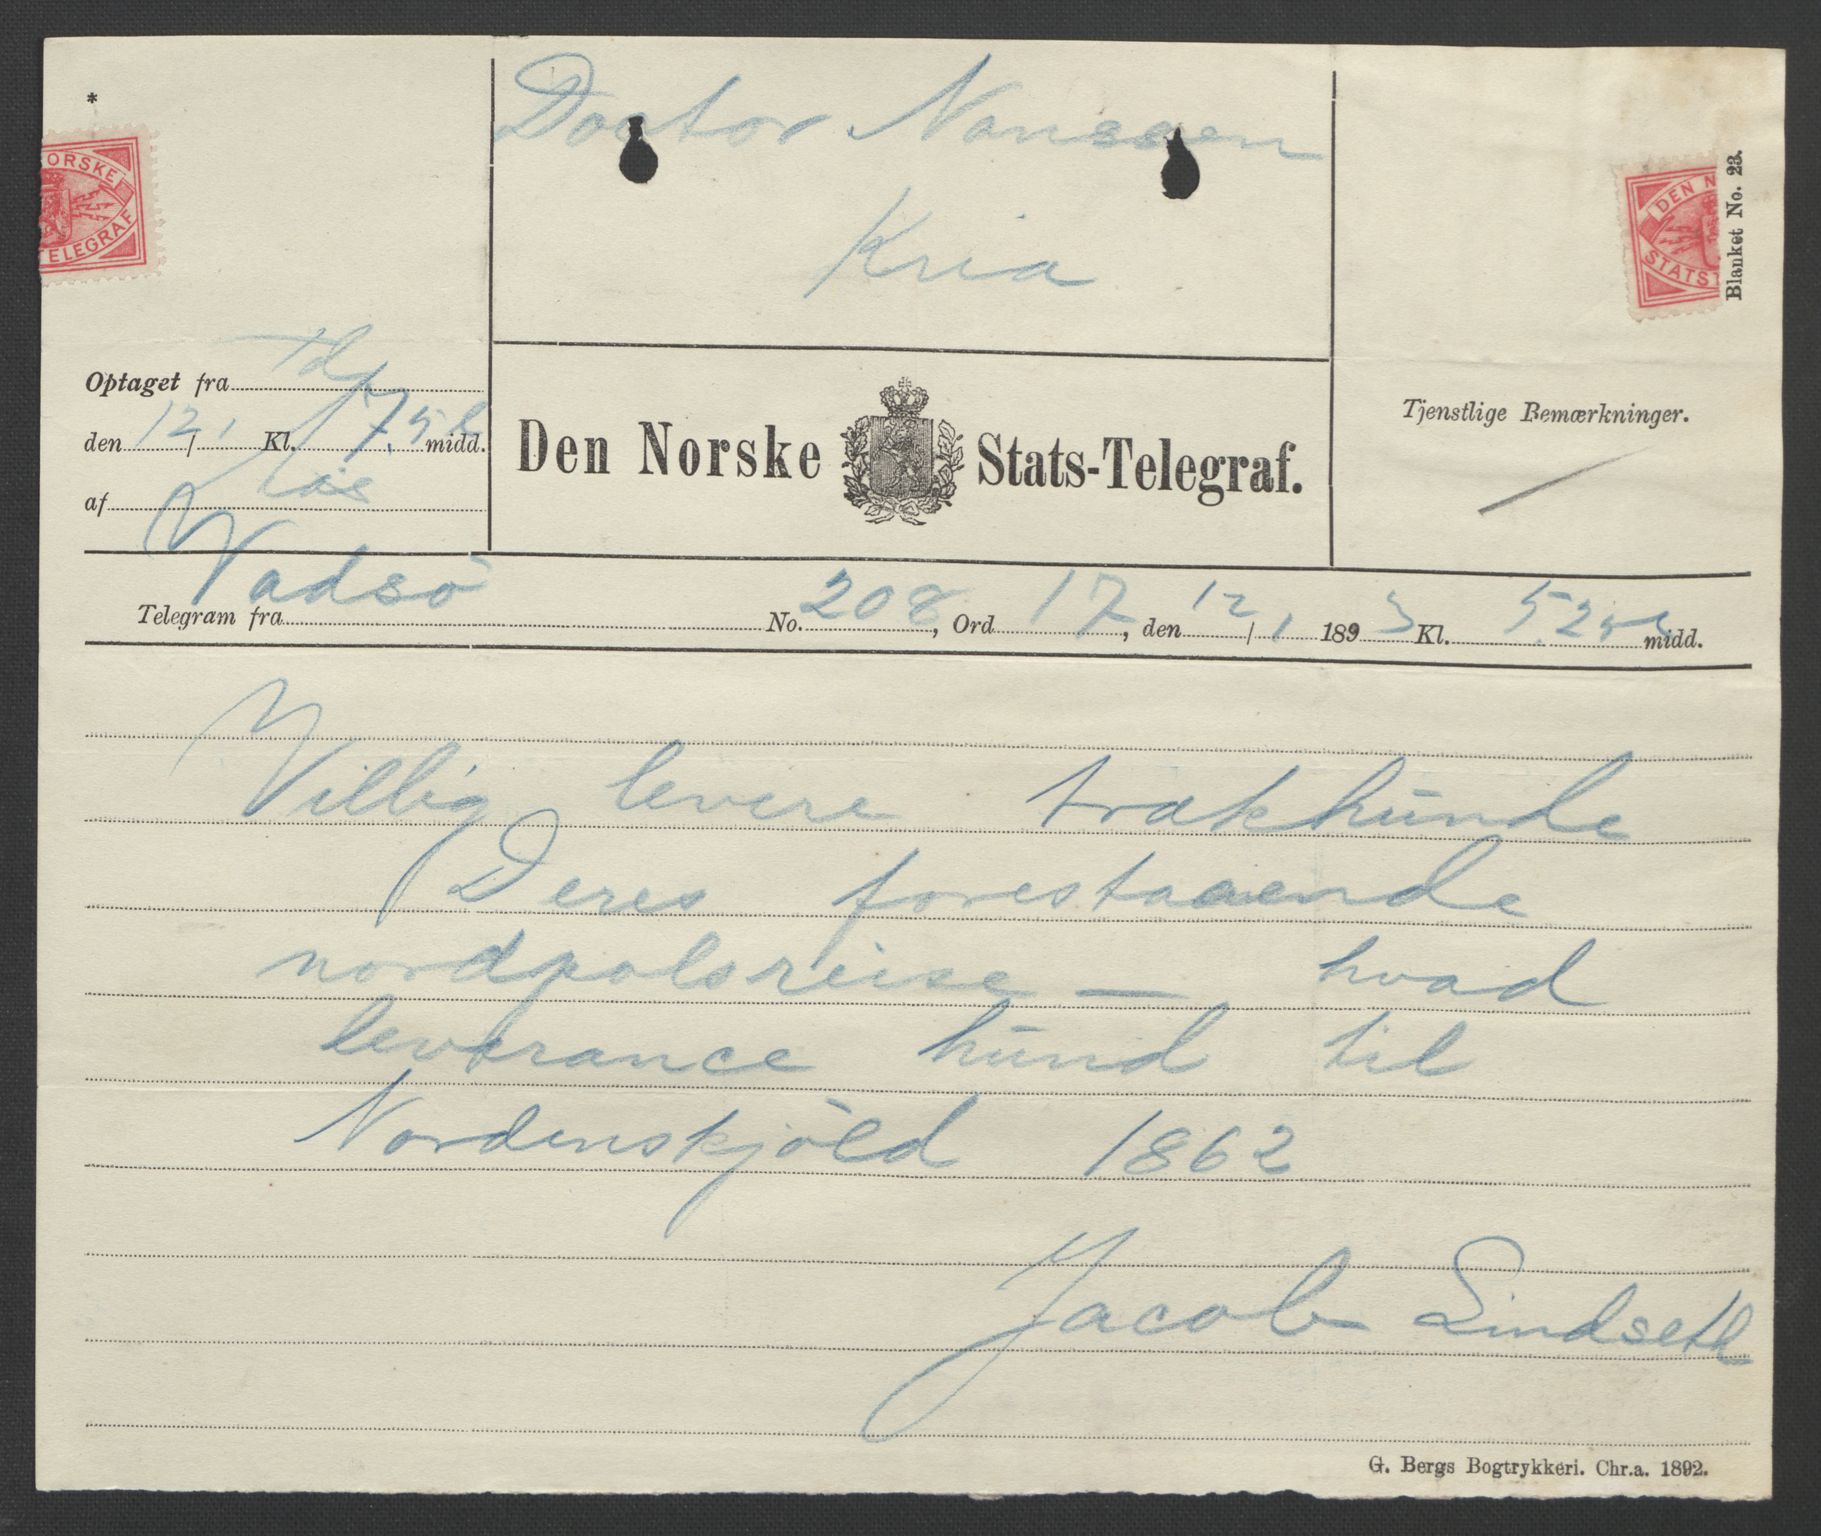 *
Doctor Nanssen
Kria
ORSKE
TELEGRAF
DEN N
STATST
Blanket No. 23.
Optaget fra
den 12/1 Kl. 7.5 midd.
af
Den Norske Stats-Telegraf.
Tjenstlige Bemærkninger.
Telegram fra Vadsö No. 208, Ord 17, den 12/1 1893 Kl. 5.25 midd.
Villig levere trakhunde
Deres forestaaende
nordpolsreise — hvad
leverance hund til
Nordenskjöld 1862
Jacob Lindseth
G. Bergs Bogtrykkeri. Chr.a. 1892.